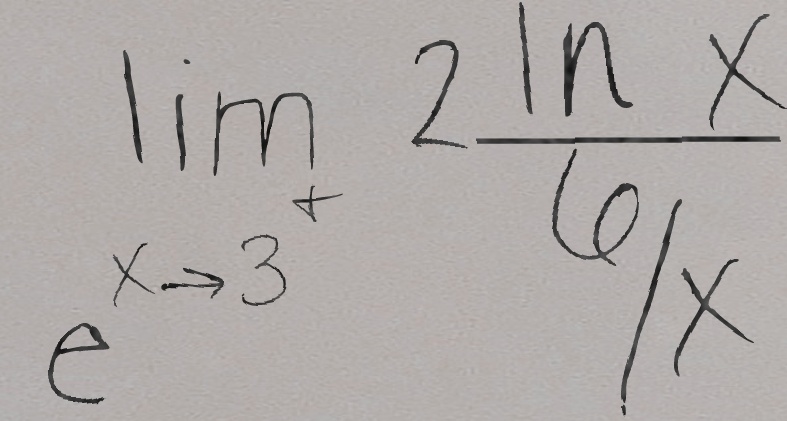 e^{\lim_{x \to 3^+} 2 \frac{\ln x}{6/x}}